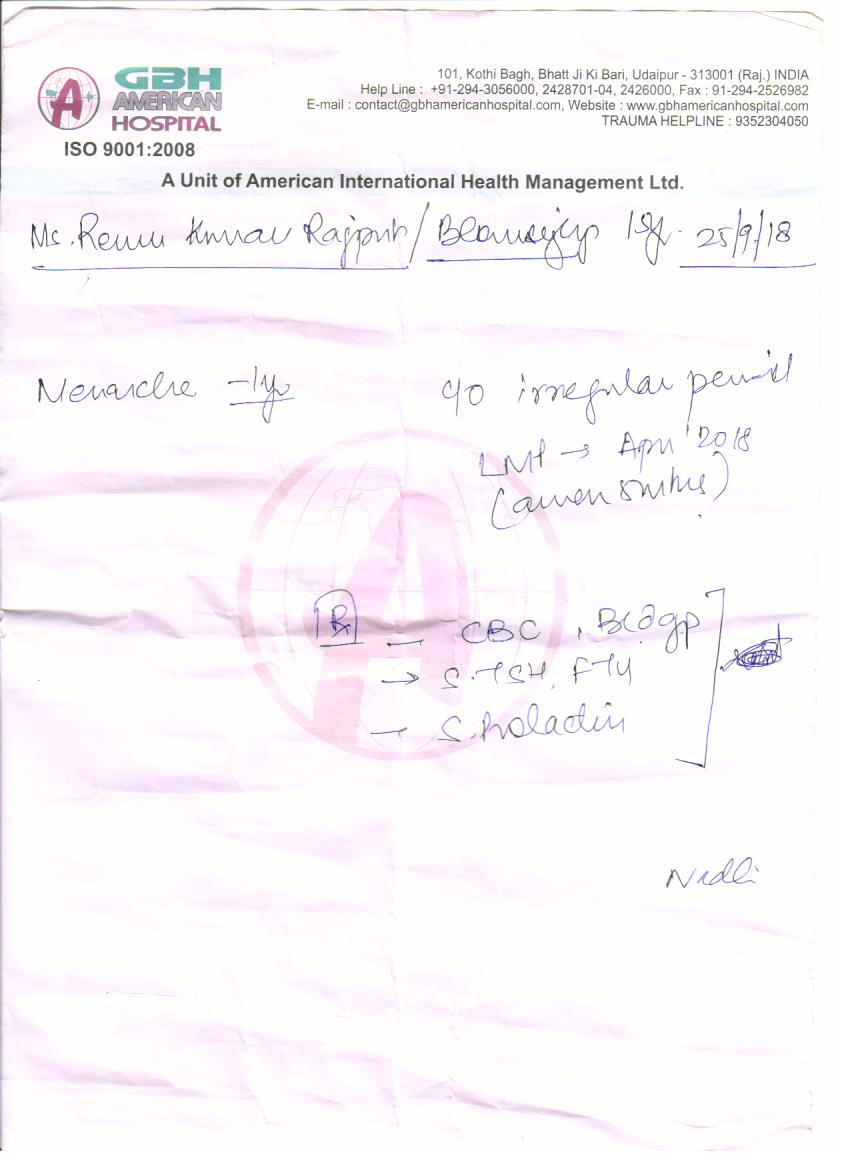 GBH
AMERICAN
HOSPITAL
ISO 9001:2008
101, Kothi Bagh, Bhatt Ji Ki Bari, Udaipur - 313001 (Raj.) INDIA
Help Line : +91-294-3056000, 2428701-04, 2426000, Fax : 91-294-2526982
E-mail : contact@gbhamericanhospital.com, Website : www.gbhamericanhospital.com
TRAUMA HELPLINE : 9352304050
A Unit of American International Health Management Ltd.
Ms. Renu Kunwar Rajput / 25/9/18
Menarche - 1yr
c/o irregular period
LMP → April '2018
(amen 5mths)
Rx - CBC, Bldgp
→ S.TSH, FT4
- S.Prolactin
Nidhi